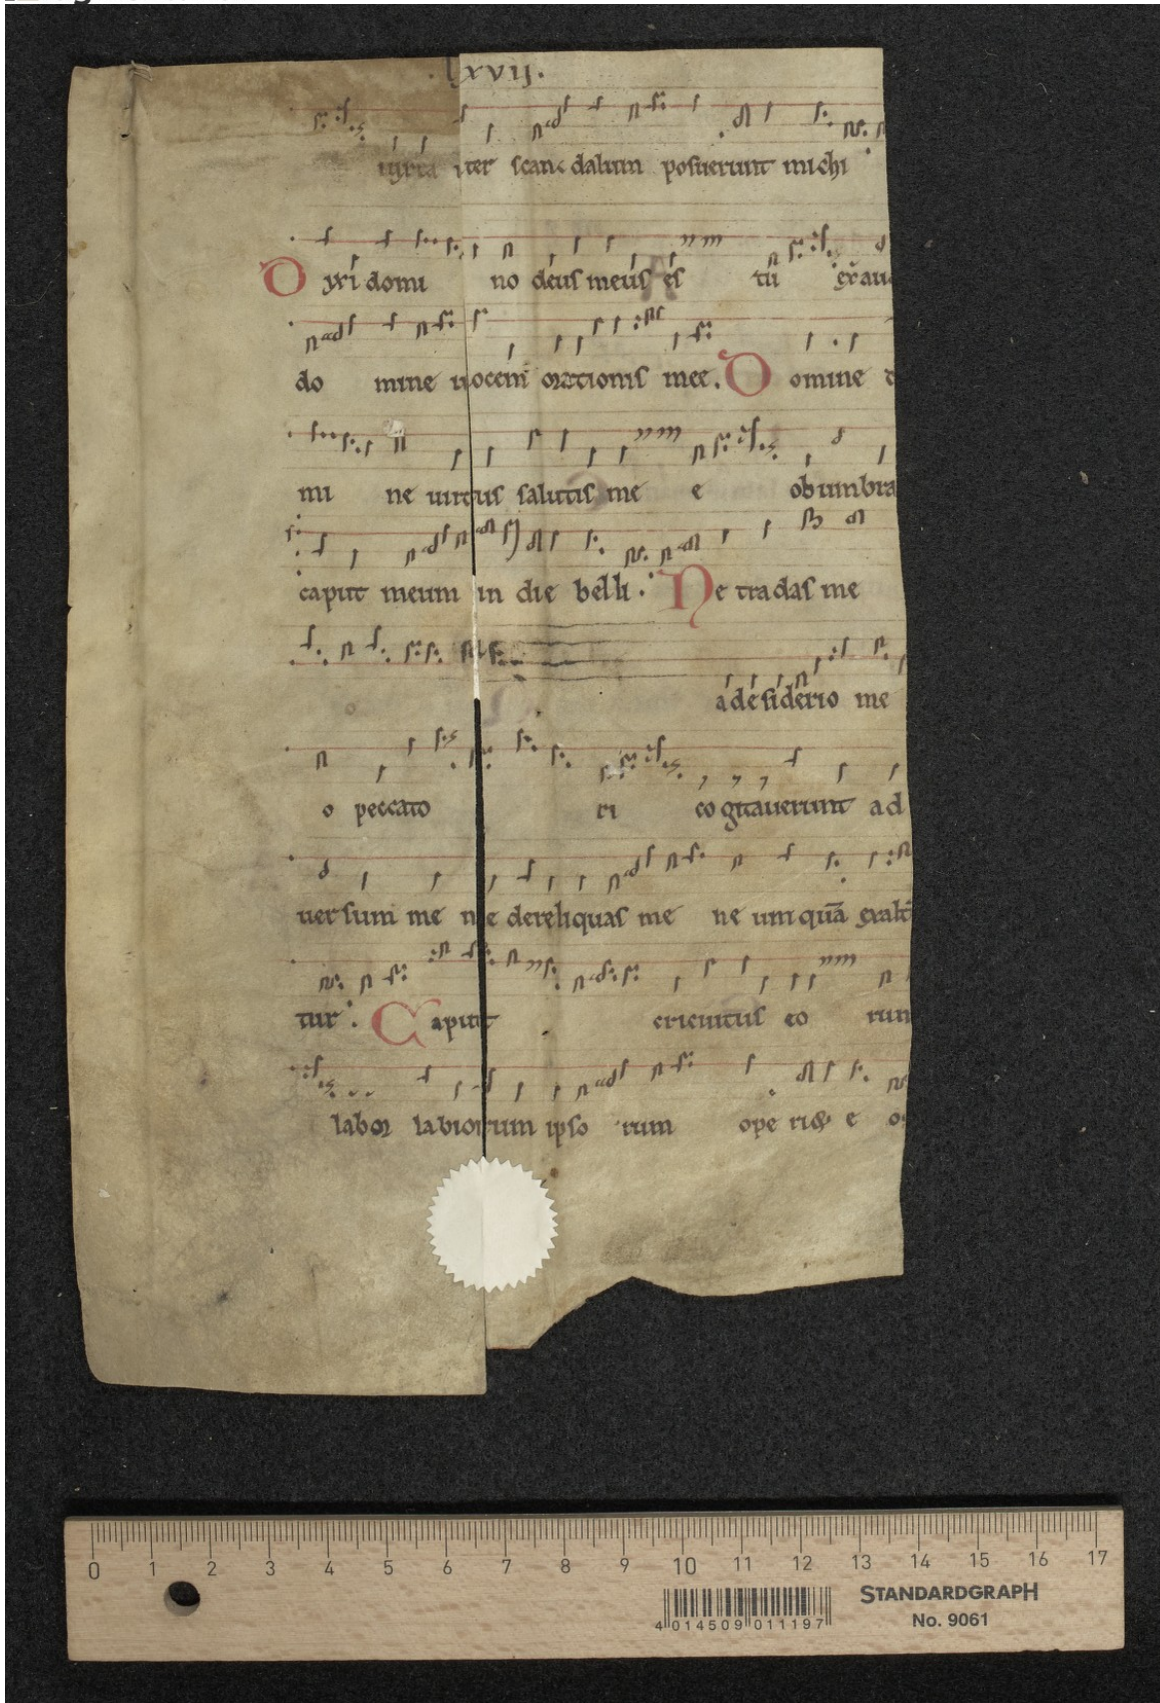 .lxvij.
iuxta iter scandalum posuerunt michi
Dixi domino deus meus es tu exau
do mine uocem orationis mee. Domine
mi ne uirtus salutis me e obumbra
caput meum in die belli. Ne tradas me
a desiderio me
o peccato ri cogitauerunt ad
uersum me ne derelinquas me ne umquā exalt
tur. Caput circuitus eo rum
labor labiorum ipso rum ope riet e os
0 1 2 3 4 5 6 7 8 9 10 11 12 13 14 15 16 17
STANDARDGRAPH
No. 9061
4 014509 011197